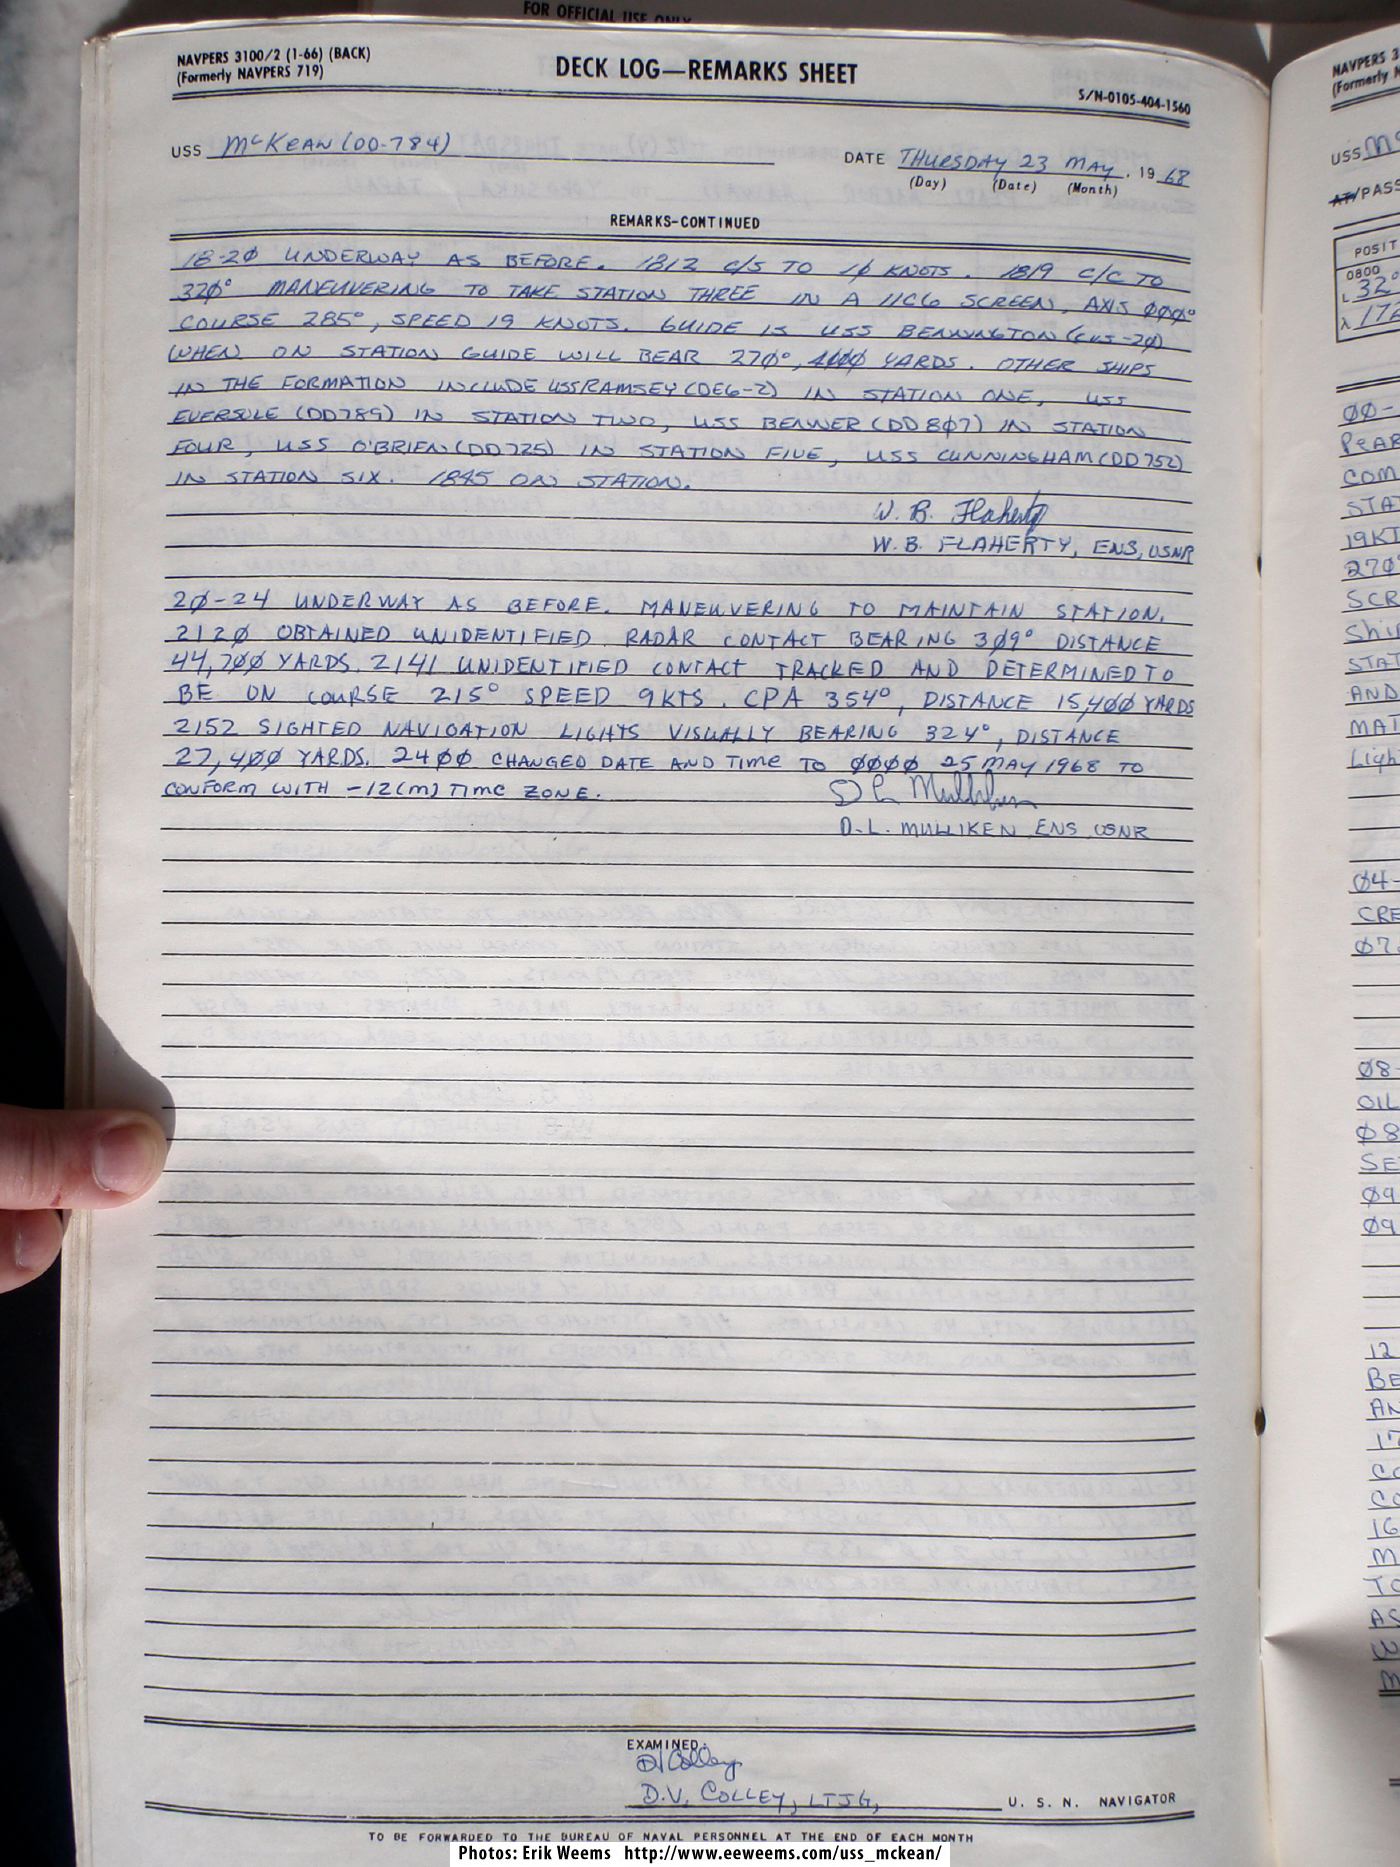 FOR OFFICIAL USE ONLY
NAVPERS 3100/2 (1-66) (BACK)
(Formerly NAVPERS 719)
DECK LOG—REMARKS SHEET
S/N-0105-404-1560
USS McKEAN (DD-784)
DATE THURSDAY 23 MAY, 19 68
(Day) (Date) (Month)
REMARKS-CONTINUED
18-2Ø UNDERWAY AS BEFORE. 1812 C/S TO 1Ø KNOTS. 1819 C/C TO
32Ø° MANEUVERING TO TAKE STATION THREE IN A 11CG SCREEN, AXIS ØØØ°
COURSE 285°, SPEED 19 KNOTS. GUIDE IS USS BENNINGTON (CVS-2Ø)
WHEN ON STATION GUIDE WILL BEAR 27Ø°, YARDS. OTHER SHIPS
IN THE FORMATION INCLUDE USS RAMSEY (DEG-2) IN STATION ONE, USS
EVERSOLE (DD789) IN STATION TWO, USS BENNER (DD 8Ø7) IN STATION
FOUR, USS O'BRIEN (DD 725) IN STATION FIVE, USS CUNNINGHAM (DD 752)
IN STATION SIX. 1845 ON STATION.
W. B. Flaherty
W. B. FLAHERTY, ENS, USNR
2Ø-24 UNDERWAY AS BEFORE. MANEUVERING TO MAINTAIN STATION.
212Ø OBTAINED UNIDENTIFIED RADAR CONTACT BEARING 3Ø9° DISTANCE
44,7ØØ YARDS. 2141 UNIDENTIFIED CONTACT TRACKED AND DETERMINED TO
BE ON COURSE 215° SPEED 9KTS. CPA 354°, DISTANCE 15,4ØØ YARDS
2152 SIGHTED NAVIGATION LIGHTS VISUALLY BEARING 324°, DISTANCE
27,4ØØ YARDS. 24ØØ CHANGED DATE AND TIME TO ØØØØ 25 MAY 1968 TO
CONFORM WITH -12(M) TIME ZONE.
D L Mulliken
D. L. MULLIKEN ENS USNR
EXAMINED:
DV Colley
D.V. COLLEY, LTJG, U. S. N. NAVIGATOR
TO BE FORWARDED TO THE BUREAU OF NAVAL PERSONNEL AT THE END OF EACH MONTH
Photos: Erik Weems http://www.eeweems.com/uss_mckean/
NAVPERS 3
(Formerly N
USS M
AT/PASS
POSIT
0800
L 32°
λ 172
ØØ-
PEAR
COM
STA
19KT
27Ø°
SCR
Shi
STAT
AND
MAI
Ligh
Ø4-
CRE
Ø7
Ø8-
OIL
Ø8
SE
Ø9
Ø9
12
BE
AN
17
CO
CO
16
M
TO
AS